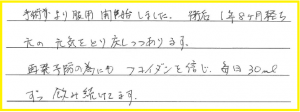 手術前より服用開始しました。術后1年8ヶ月経ち
元の元気をとり戻しつつあります。
再発予防の為にも フコイダンを信じ 毎日30ml
ずつ飲み続けてます。